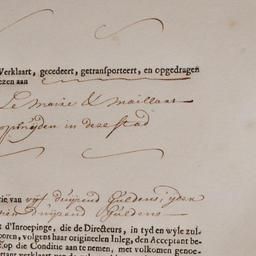 Verklaart, gecedeert, getransporteert, en opgedragen
ezen aan
Le Maire & Maillart
in deze stad
ië van vijf duijzend Guldens, ijder
duijzend Guldens
t d'Inroepinge, die de Directeurs, in tyd en wyle zul-
ooren, volgens haar origineelen Inleg, den Acceptant be-
Eop die Conditie aan te nemen, met volkomen genoe-